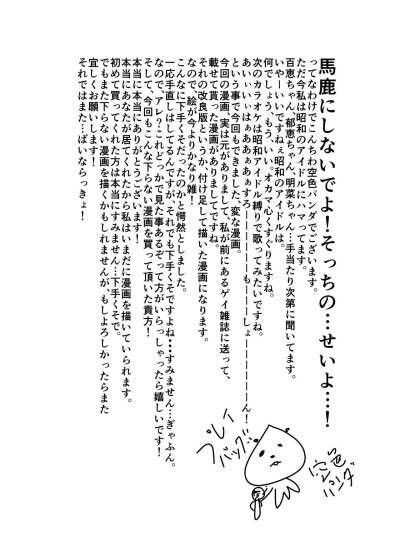 馬鹿にしないでよ！そっちの…せいよ…！
ってなわけでこんちわ空色パンダでございます。
ただ今私は昭和のアイドルにハマってます。
百恵ちゃん、郁恵ちゃん、明菜ちゃん…手当たり次第に聞いてます。
いやーいいですねぇ昭和のアイドルは。
何でしょう…もう…いいオカマ心くすぐりますね。
次のカラオケは昭和アイドル縛りで歌ってみたいですね。
という事で今回もできました、変な漫画。
今回の漫画、実は元がありまして、私が前にあるゲイ雑誌に送って、
載せて貰った漫画がありましてですね。
それの改良版というか、付け足して描いた漫画になります。
なので、絵が今よりかなり雑！
こんなに下手くそだったのかと愕然としました。
一応手直しはしてるんですが、それでも下手くそですよね…すみません…ぎゃふん。
なので「アレ？これどっかで見た事あるぞ」って方がいらっしゃったら嬉しいです！
そして、今回もこんな下らない漫画を買って頂いた貴方！
本当に本当にありがとうございます！
本当にあなたが居てくれたから私はいまだに漫画を描いていられます。
初めて買ってくれた方は本当にすみません…下手くそで。
でもまた下らない漫画を描くかもしれませんが、もしよろしかったらまた
宜しくお願いします！
それではまた…ばいならっきょ！
プレイバッグ♪
空色パンダ